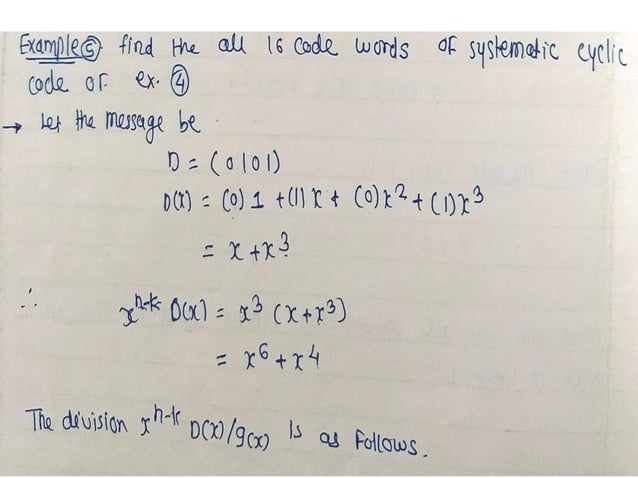 Example⑤ find the all 16 code words of systematic cyclic
code or ex. ④
→ Let the message be
D = (0101)
D(x) = (0) 1 + (1) x + (0) x² + (1) x³
= x + x³
∴ xⁿ⁻ᵏ D(x) = x³ (x + x³)
= x⁶ + x⁴
The division xⁿ⁻ᵏ D(x)/g(x) is as follows.